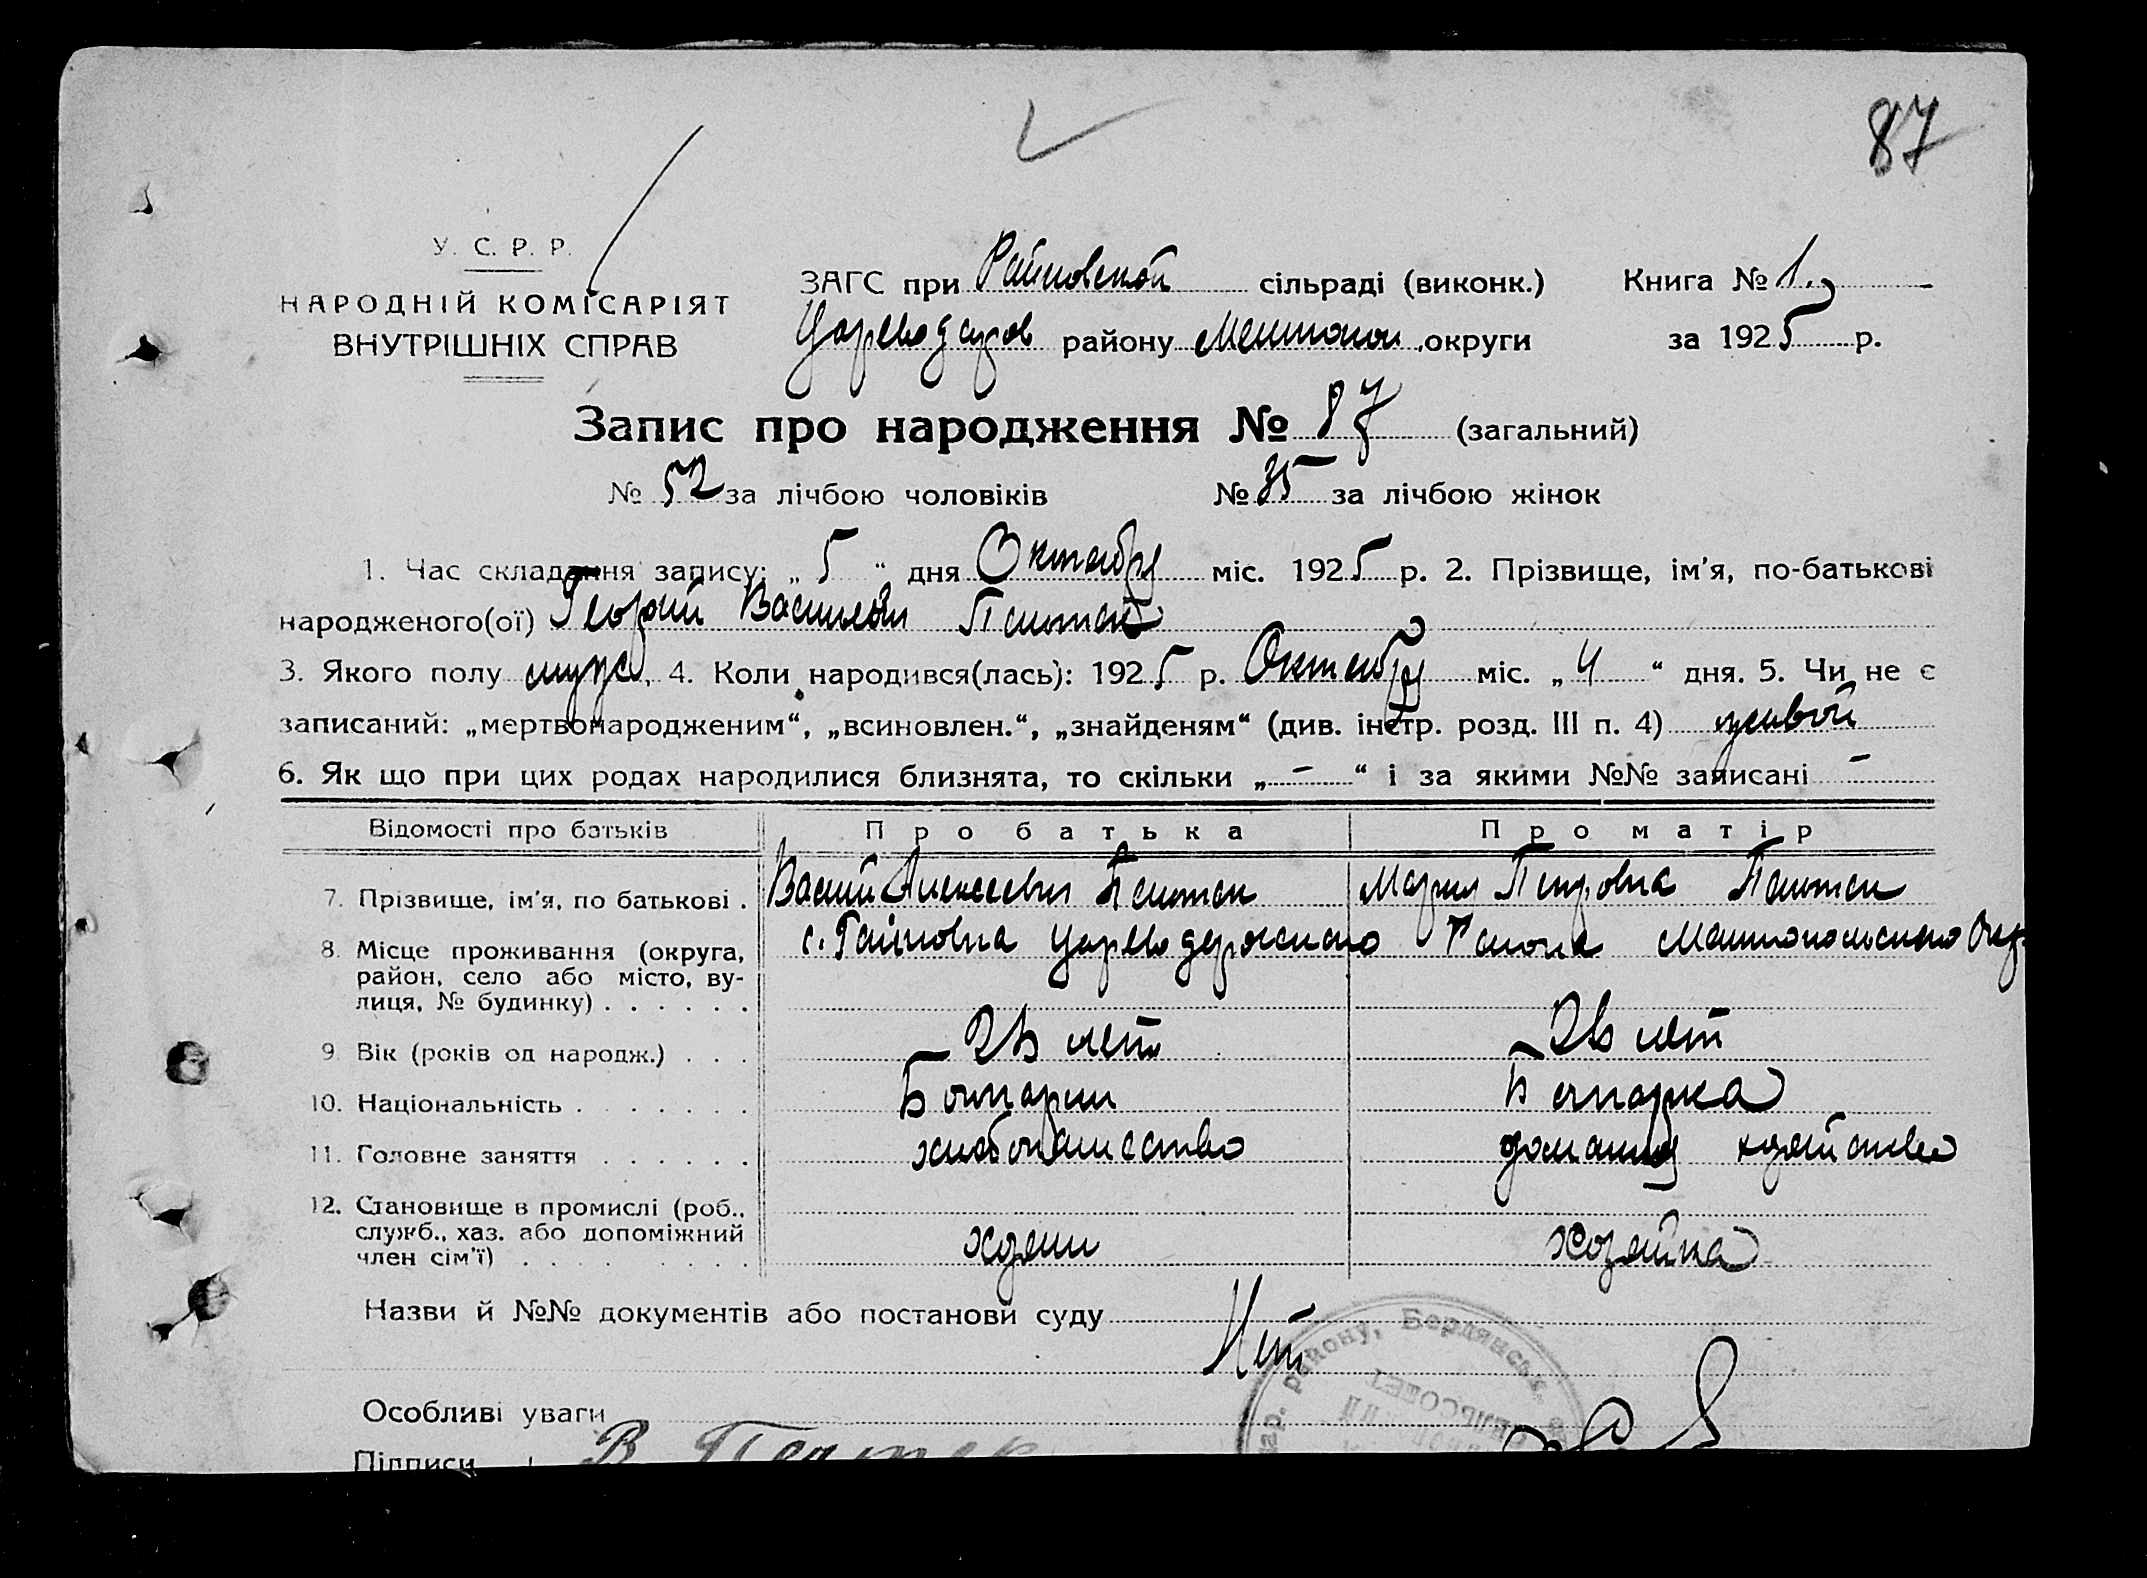 87
У. С. Р. Р.
НАРОДНІЙ КОМІСАРІЯТ
ВНУТРІШНІХ СПРАВ
ЗАГС при Райновской сільраді (виконк.) Книга № 1.
району округи за 1925 р.
Запис про народження № 87 (загальний)
№ 52 за лічбою чоловіків № 35 за лічбою жінок
1. Час складання запису: „5“ дня Октября міс. 1925 р. 2. Прізвище, ім'я, по-батькові
народженого(ої) Георгий
3. Якого полу муж. 4. Коли народився(лась): 1925 р. Октября міс. „4“ дня. 5. Чи не є
записаний: „мертвонародженим“, „всиновлен.“, „знайденям“ (див. інстр. розд. III п. 4) живой
6. Як що при цих родах народилися близнята, то скільки „-“ і за якими №№ записані -
Відомості про батьків Про батька Про матір
7. Прізвище, ім'я, по батькові . Василий Алексеевич Мария Петровна
8. Місце проживання (округа, с. Райновка Района
район, село або місто, ву-
лиця, № будинку) . . . . . .
9. Вік (років од народж.) . . . лет лет
10. Національність . . . . . . . Болгарин Болгарка
11. Головне заняття . . . . . . хлебопашество домашнее хозяйство
12. Становище в промислі (роб.,
служб., хаз. або допоміжний хозяин хозяйка
член сім'ї) . . . . . . . .
Назви й №№ документів або постанови суду
Нет
району, Бердянськ
Особливі уваги
Підписи В.